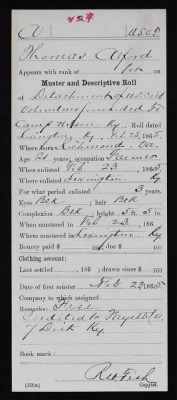 A U.S.C.T.
Thomas Alford
Appears with rank of Pvt. on
Muster and Descriptive Roll
of Detachment of U.S. Cold
Volunteers forwarded to
Camp Nelson, Ky. Roll dated
Lexington, Ky. Feb 23, 1865.
Where born Richmond, Va.
Age 21 years; occupation Farmer
When enlisted Feb. 23, 1865
Where enlisted Lexington, Ky
For what period enlisted 3 years.
Eyes Blk; hair Blk
Complexion Blk; height 5 ft. 5 in.
When mustered in Feb. 23, 186
Where mustered in Lexington, Ky
Bounty paid $ 100; due $ 100
Clothing account:
Last settled , 186 ; drawn since $ 100
Date of first muster Feb 23, 1865
Company to which assigned
Remarks: Free
Credited to Fayette Co.
7 Dist. Ky.
Book mark:
(356m) Copyist.